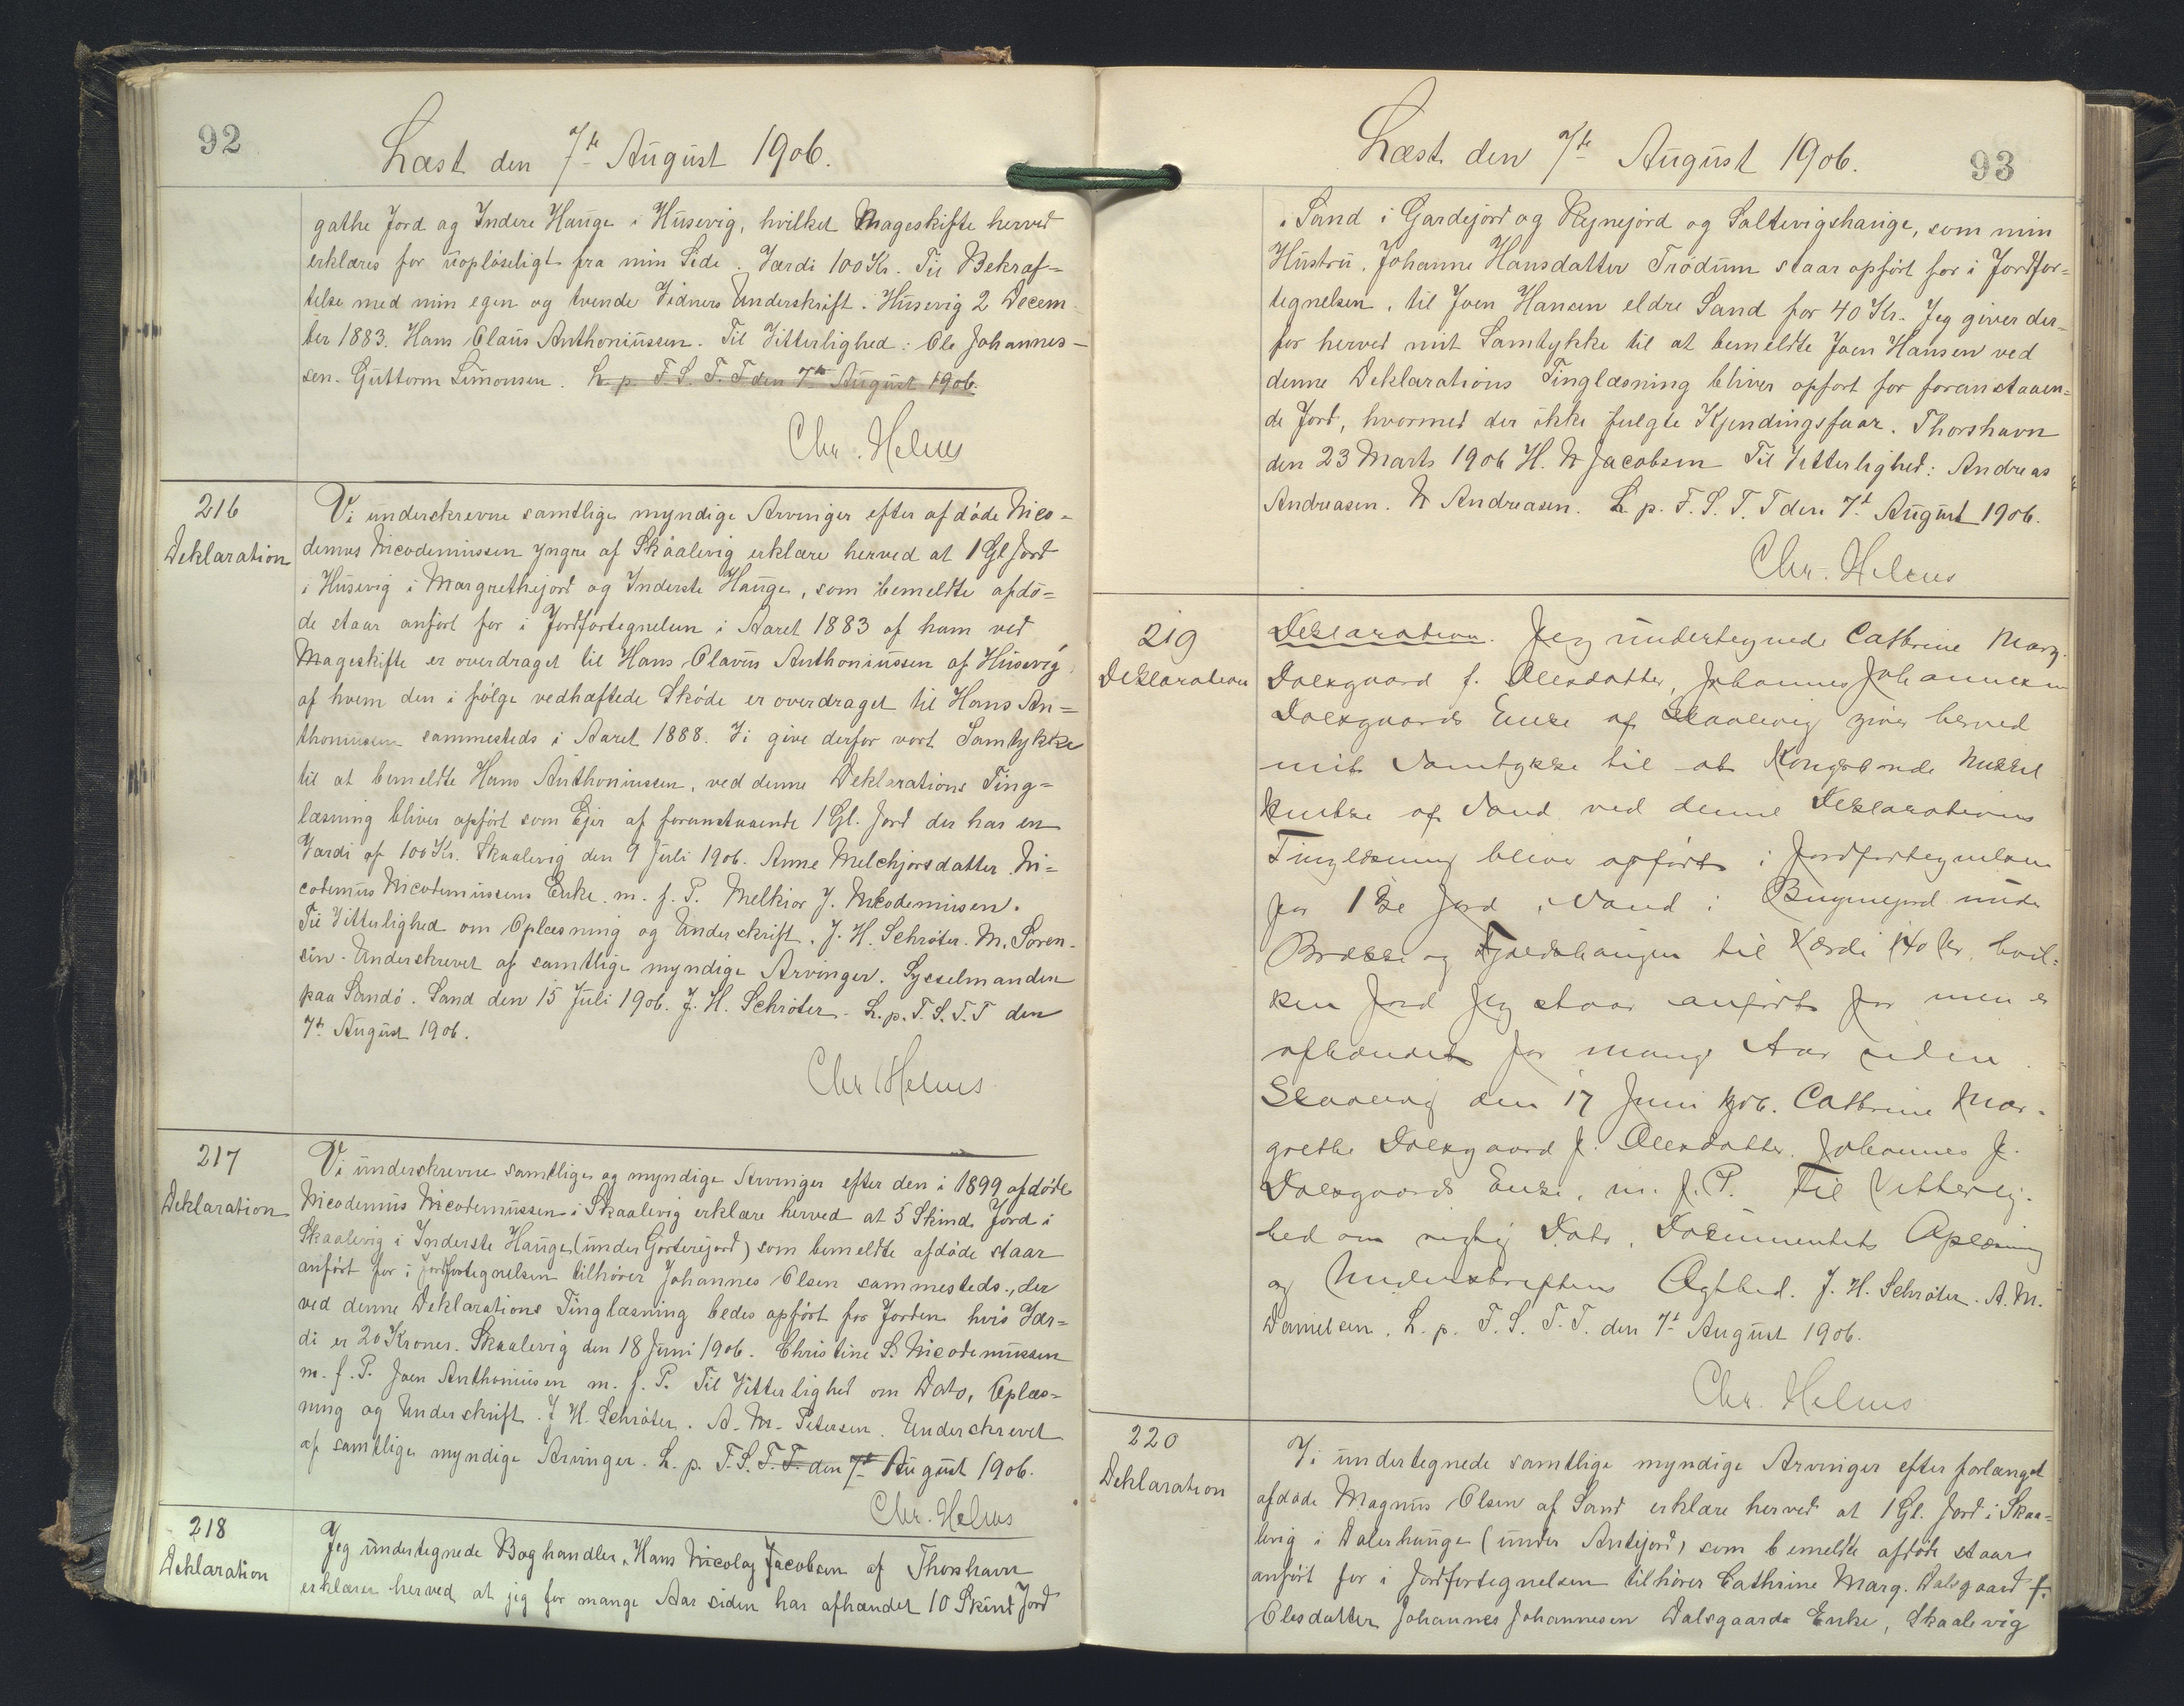 92
Læst den 7de August 1906.
gathe Jord og Indere Hauge i Húsevig, hvilket Mageskifte herved
erklæres for uopløseligt fra min Side. Værdi 100 Kr. Til Bekræf=
telse med min egen og tvende Vidners Underskrift. Húsevig 2 Decem-
ber 1883. Hans Olaús Anthoniússen. Til Vitterlighed: Ole Johannes-
sen. Guttorm Simonsen. L. p. F. S. T. T den 7de August 1906.
Chr. Helms
216
Deklaration
Vi underskrevne samtlige myndige Arvinger efter afdøde Nico-
demus Nicodemussen yngre af Skaalevig erklære herved at 1 Gl Jord
i Húsevig i Margrethejord og Inderste Hauge, som bemeldte afdø=
de staar anført for i Jordfortegnelsen i Aaret 1883 af ham ved
Mageskifte er overdraget til Hans Olavús Anthoniússen af Húsevig,
af hvem den i følge vedhæftede Skøde er overdraget til Hans An=
thoniussen sammesteds i Aaret 1888. Vi give derfor vort Samtykke
til at bemeldte Hans Anthoniussen, ved denne Deklarations Ting=
læsning bliver opført som Ejer af foranstaaende 1 Gl. Jord der har en
Værdi af 100 Kr. Skaalevig den 9 Juli 1906. Anne Melchjorsdatter Ni=
codemus Nicodemussens Enke. m. f. P. Melkior J. Nicodemusen.
Til Vitterlighed om Oplæsning og Underskrift. J. H. Schrøter. M. Soren-
sen. Underskrevet af samtlige myndige Arvinger. Sysselmanden
paa Sandø. Sand den 15 Juli 1906. J. H. Schrøter. L. p. F. S. T. T den
7de August 1906.
Chr Helms
217
Deklaration
Vi underskrevne samtlige og myndige Arvinger efter den i 1899 afdøde
Nicodemus Nicodemussen i Skaalevig erklære herved at 5 Skind Jord i
Skaalevig i Inderste Hauge (under Gørterejord) som bemeldte afdøde staar
anført for i Jordfortegnelsen tilhører Johannes Olsen sammesteds, der
ved denne Deklarations Tinglæsning bedes opført for Jorden hvis Vær-
di er 20 Kroner. Skaalevig den 18 Juni 1906. Christine S. Nicodemussen
m. f. P. Joen Anthoniusen m. f. P. Til Vitterlighed om Dato, Oplæs-
ning og Underskrift. J. H. Schrøter. A. M. Petersen. Underskrevet
af samtlige myndige Arvinger. L. p. F. S. T. T. den 7de August 1906.
Chr. Helms
218
Deklaration
Jeg undertegnede Boghandler, Hans Nicolay Jacobsen af Thorshavn
erklærer herved, at jeg for mange Aar siden har afhændet 10 Skind Jord
Læst den 7de August 1906.
93
i Sand i Gardejord og Rejnejord og Saltevigshauge, som min
Hustru, Johanne Hansdatter Trødum staar opført for i Jordfor=
tegnelsen, til Joen Hansen eldre Sand for 40 Kr. Jeg giver der=
for herved mit Samtykke til at bemeldte Joen Hansen ved
denne Deklarations Tinglæsning bliver opført for foranstaaen=
de Jord, hvormed der ikke fulgte Kjendingsfaar. Thorshavn
den 23 Marts 1906 H. N Jacobsen Til Vitterlighed: Andreas
Andreasen. N Andreasen. L. p. F. S. T. T den 7de August 1906.
Chr. Helms
219
Deklaration
Deklaration. Jeg undertegnede Cathrine Marg.
Dalsgaard f. Olesdatter, Johannes Johannesen
Dalsgaards Enke af Skaalevig giver herved
mit Samtykke til at Kongsbonde Mikkel
af Sand ved denne Deklarations
Tinglæsning bliver opført i Jordfortegnelsen
for 1 Jord i Sand i under
Brekke og til Værdi 140 Kr, hvil-
ken Jord jeg staar anført for men er
afhændet for mange Aar siden.
Skaalevig den 17 Juni 1906. Cathrine Mar-
grethe Dalsgaard f. Olesdatter. Johannes J.
Dalsgaards Enke, m. f. P. Til Vitterlig-
hed om rigtig Dato, Documentets Oplæsning
og Underskriftens Ægthed. J. H. Schrøter. A. M.
Danielsen. L. p. F. S. T. T. den 7de August 1906.
Chr. Helms
220
Deklaration
Vi undertegnede samtlige myndige Arvinger efter forlængst
afdøde Magnus Olsen af Sand erklære herved at 1 Gl. Jord i Skaa=
levig i Dalerhauge (under Antijord) som bemeldte afdøde staar
anført for i Jordfortegnelsen tilhører Cathrine Marg. Dalsgaard f.
Olesdatter Johannes Johannesen Dalsgaards Enke, Skaalevig